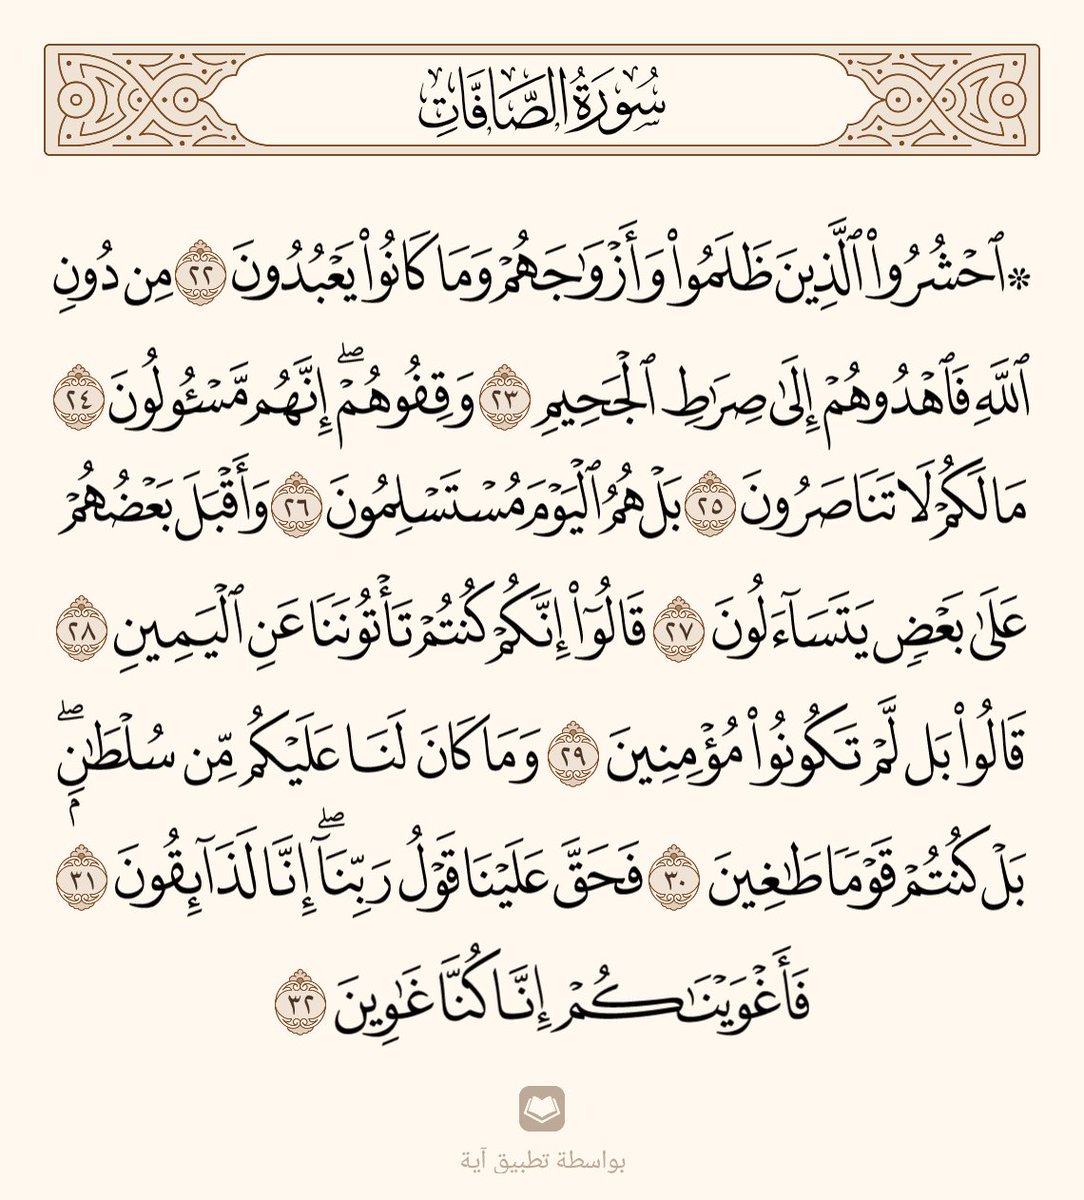 سُورَةُ الصَّافَّاتِ
۞ ٱحۡشُرُواْ ٱلَّذِينَ ظَلَمُواْ وَأَزۡوَٰجَهُمۡ وَمَا كَانُواْ يَعۡبُدُونَ ٢٢ مِن دُونِ
ٱللَّهِ فَٱهۡدُوهُمۡ إِلَىٰ صِرَٰطِ ٱلۡجَحِيمِ ٢٣ وَقِفُوهُمۡۖ إِنَّهُم مَّسۡـُٔولُونَ ٢٤
مَا لَكُمۡ لَا تَنَاصَرُونَ ٢٥ بَلۡ هُمُ ٱلۡيَوۡمَ مُسۡتَسۡلِمُونَ ٢٦ وَأَقۡبَلَ بَعۡضُهُمۡ
عَلَىٰ بَعۡضٖ يَتَسَآءَلُونَ ٢٧ قَالُوٓاْ إِنَّكُمۡ كُنتُمۡ تَأۡتُونَنَا عَنِ ٱلۡيَمِينِ ٢٨
قَالُواْ بَل لَّمۡ تَكُونُواْ مُؤۡمِنِينَ ٢٩ وَمَا كَانَ لَنَا عَلَيۡكُم مِّن سُلۡطَٰنِۭۖ
بَلۡ كُنتُمۡ قَوۡمٗا طَٰغِينَ ٣٠ فَحَقَّ عَلَيۡنَا قَوۡلُ رَبِّنَآۖ إِنَّا لَذَآئِقُونَ ٣١
فَأَغۡوَيۡنَٰكُمۡ إِنَّا كُنَّا غَٰوِينَ ٣٢
بواسطة تطبيق آية